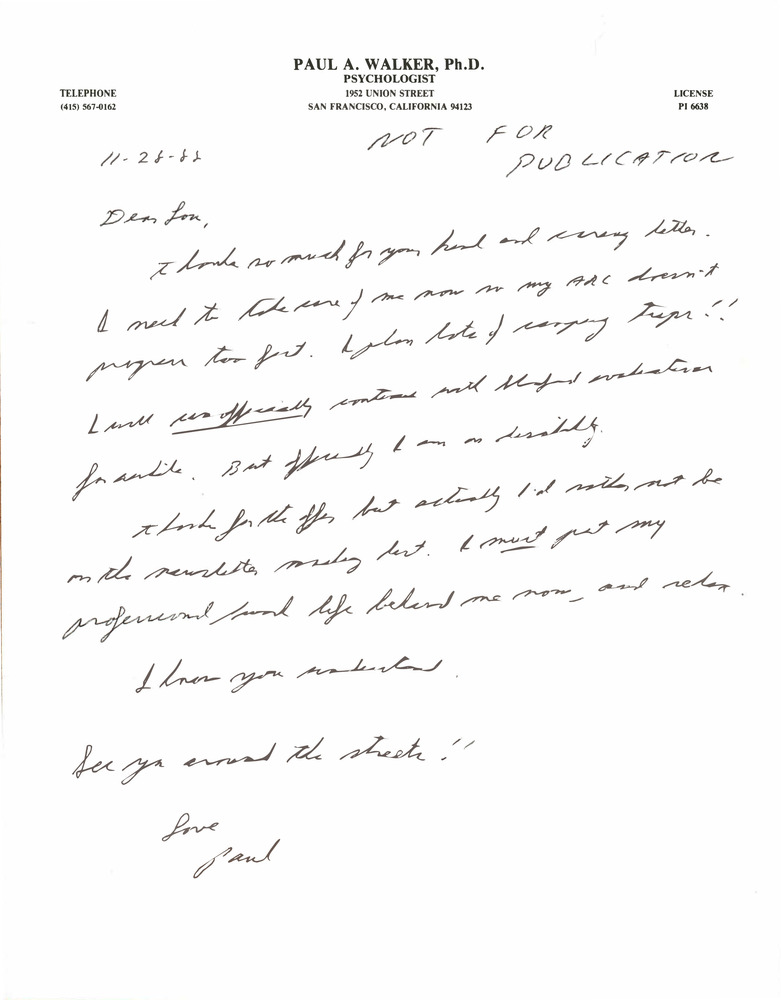 PAUL A. WALKER, Ph.D.
PSYCHOLOGIST
TELEPHONE 1952 UNION STREET LICENSE
(415) 567-0162 SAN FRANCISCO, CALIFORNIA 94123 PI 6638
NOT FOR
11-28-88 PUBLICATION
Dear Lou,
Thanks so much for your kind and caring letter.
I need to take care of me now so my ARC doesn't
progress too fast. I plan lots of camping trips!!
I will unofficially continue with evaluations
for awhile. But officially I am on disability.
Thanks for the offer but actually I'd rather not be
on the newsletter mailing list. I must put my
professional/work life behind me now, and relax.
I know you understand.
See ya around the streets!!
Love
Paul